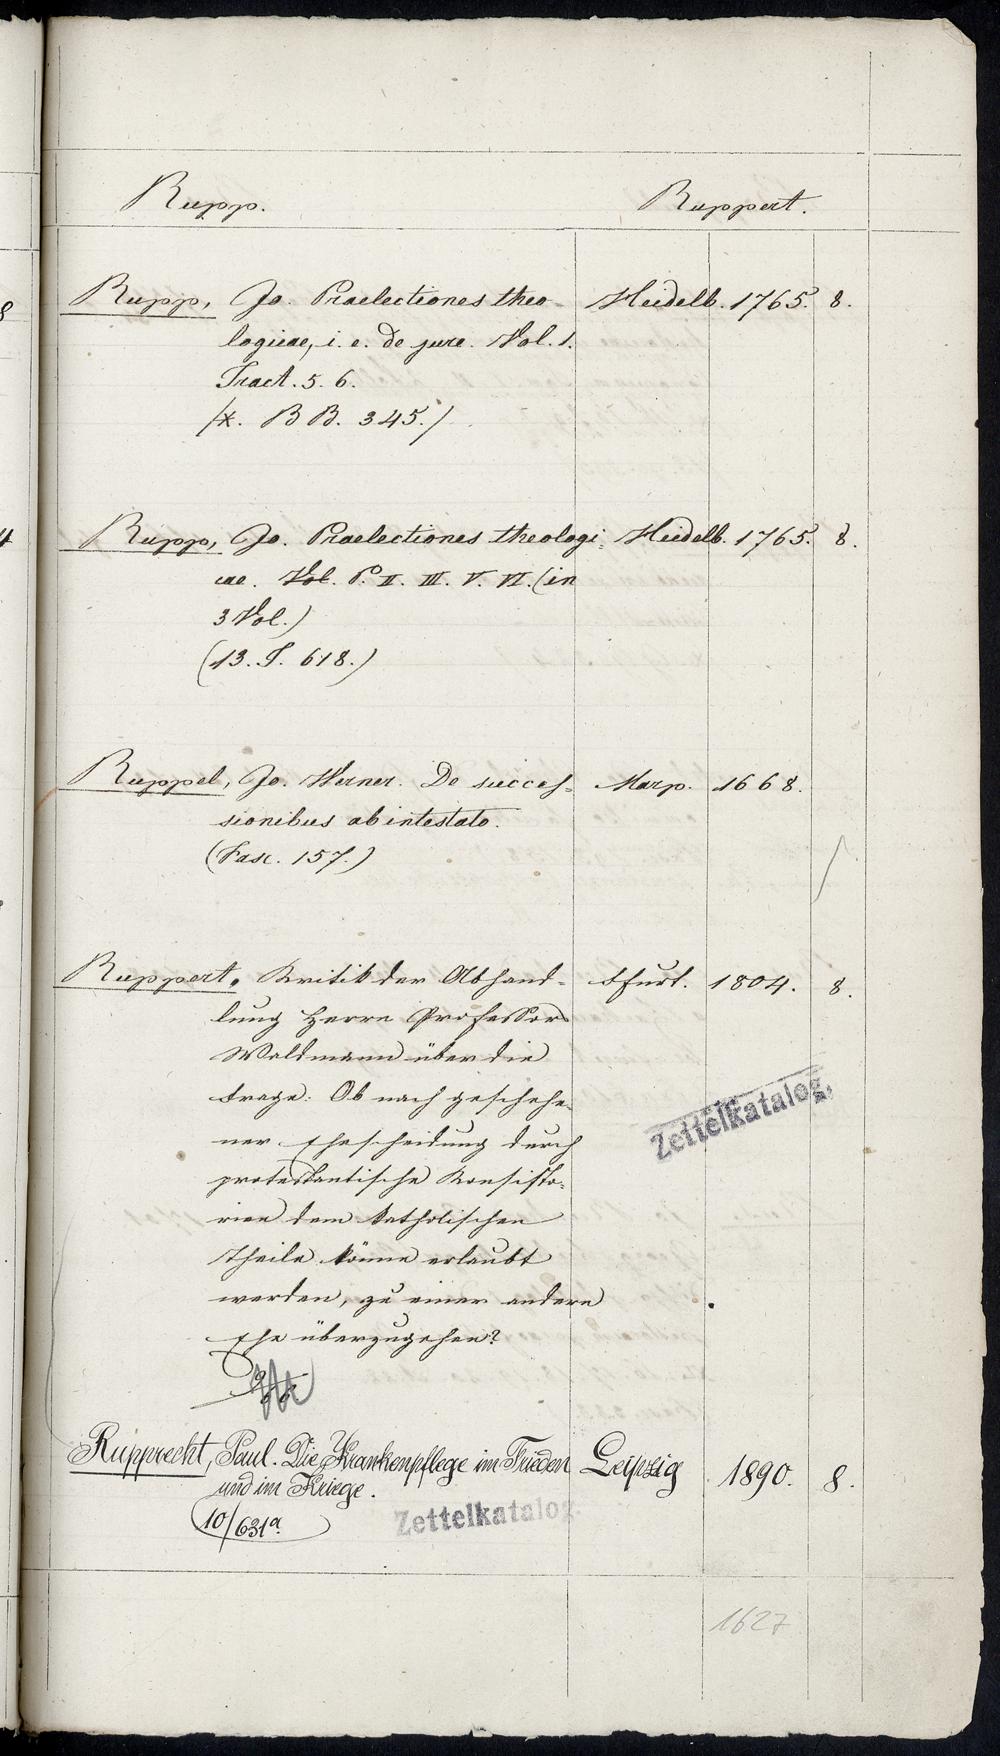 Rupp. Ruppert.
Rupp, Jo. Praelectiones theo- Heidelb. 1765. 8.
logicae, i. e. de jure. Vol. 1.
Tract. 5. 6.
/X. BB. 345./
Rupp, Jo. Praelectiones theologi- Heidelb. 1765. 8.
cae. Vol. P. II. III. V. VI. (in
3 Vol.)
(13. T. 618.)
Ruppel, Jo. Werner. De succes- Marp. 1668.
sionibus ab intestato.
(Fasc. 157.)
Ruppert. Kritik der Abhand- Efurt. 1804. 8.
lung Herrn Professors
Waldmann über die
Frage: Ob nach geschehe-
ner Ehescheidung durch
protestantische Konsisto-
rien dem katholischen
Theile könne erlaubt
werden, zu einer andern
Ehe überzugehen?
Zettelkatalog.
Rupprecht, Paul. Die Krankenpflege im Frieden Leipzig 1890. 8.
und im Kriege.
10/631a.
Zettelkatalog.
1627